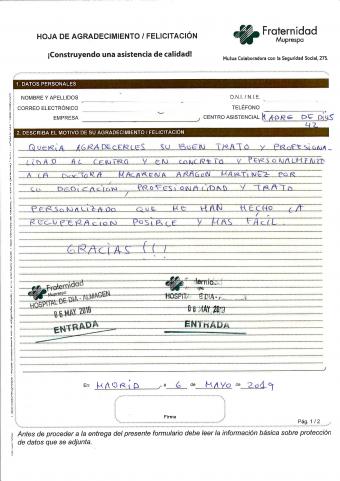 HOJA DE AGRADECIMIENTO / FELICITACIÓN
¡Construyendo una asistencia de calidad!
Fraternidad
Muprespa
Mutua Colaboradora con la Seguridad Social, 275.
1. DATOS PERSONALES
NOMBRE Y APELLIDOS
D.N.I./N.I.E.
CORREO ELECTRÓNICO
TELÉFONO
EMPRESA
CENTRO ASISTENCIAL MADRE DE DIOS
42
2. DESCRIBA EL MOTIVO DE SU AGRADECIMIENTO / FELICITACIÓN
QUERÍA AGRADECERLES SU BUEN TRATO Y PROFESIONA-
LIDAD AL CENTRO Y EN CONCRETO Y PERSONALMENTE
A LA DOCTORA MACARENA ARAGON MARTINEZ POR
SU DEDICACIÓN, PROFESIONALIDAD Y TRATO
PERSONALIZADO QUE ME HAN HECHO LA
RECUPERACION POSIBLE Y MAS FÁCIL.
GRACIAS!!!
Fraternidad
Muprespa
HOSPITAL DE DIA - ALMACEN
06 MAY. 2019
ENTRADA
HOSPIT
06 MAY 2019
ENTRADA
En MADRID, a 6 de MAYO de 2019
Firma
Pág. 1 / 2
Antes de proceder a la entrega del presente formulario debe leer la información básica sobre protección
de datos que se adjunta.